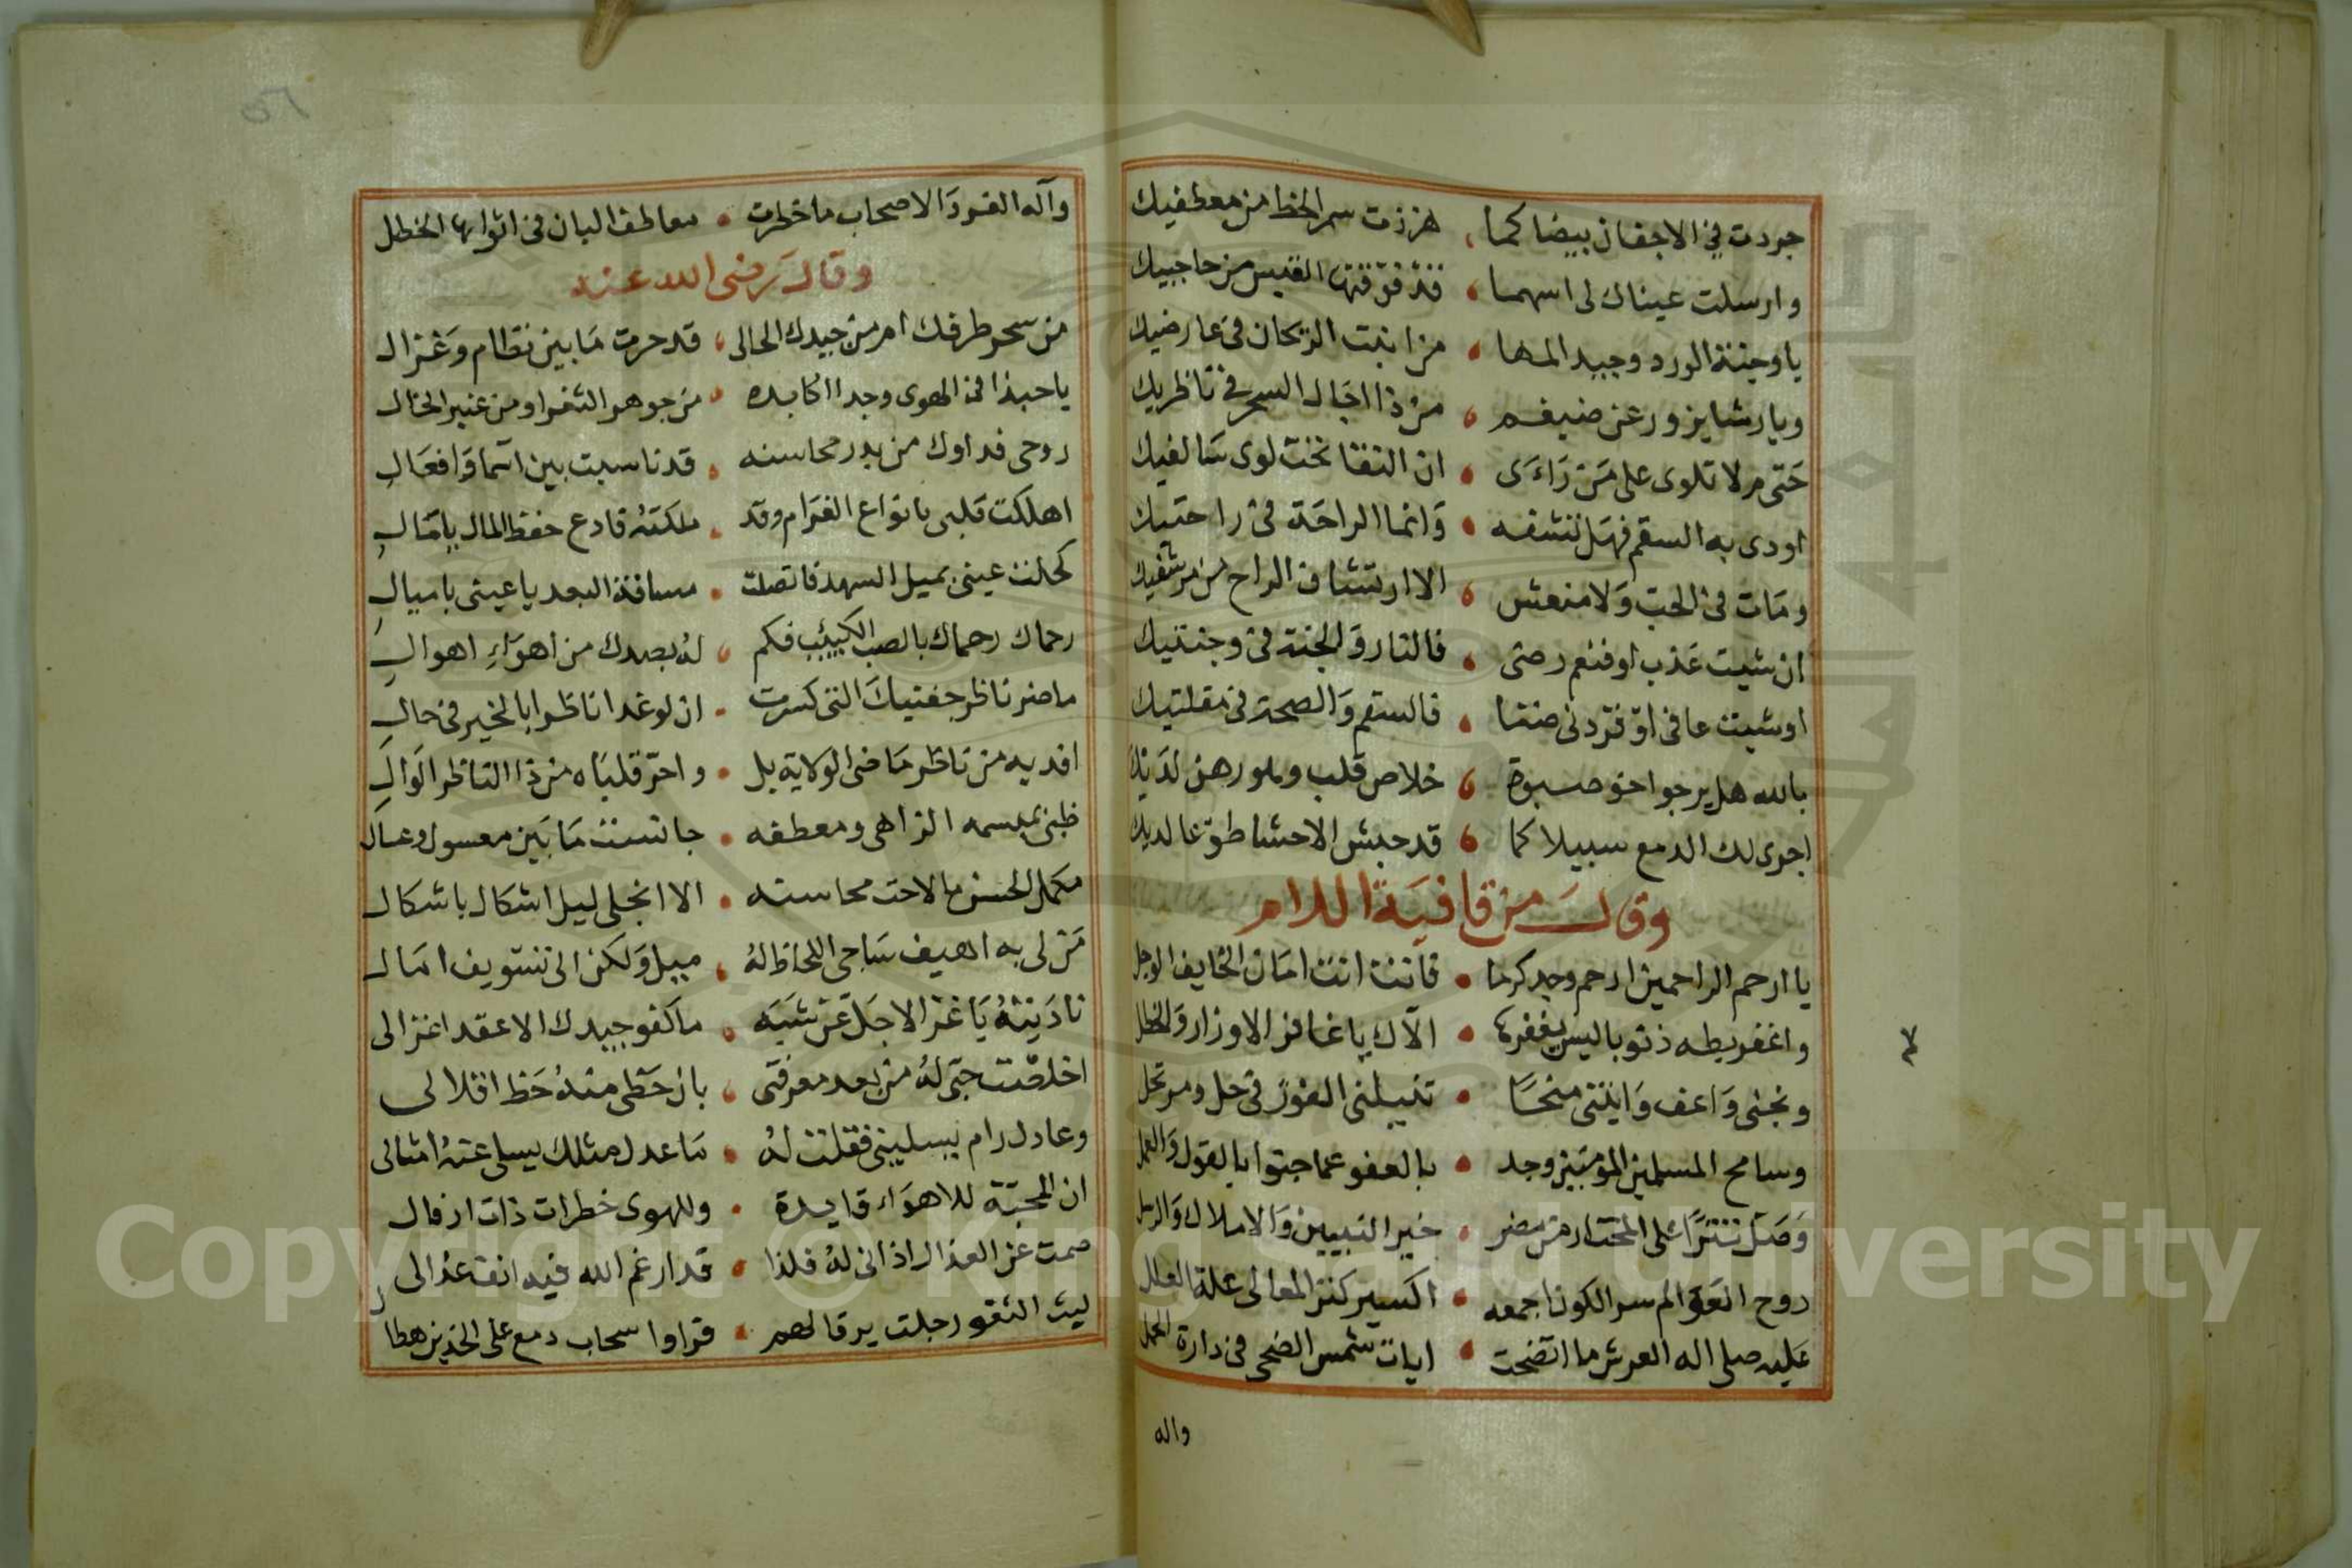 جردت في الاجفان بيضا كما ، هززت سمر الخط من معطفيك
وارسلت عيناك لى اسهما ، قد فوقتها القيس من حاجبيك
يا وجنة الورد وجيد المها ، من انبت الريحان فى عارضيك
ويا رشا يزور عن ضيغم ، من ذا اجال السحر في ناظريك
حتى م لا تلوى على من راءى ، ان النقا تحت لوى سالفيك
اودى به السقم فهل تنشفه ، وانما الراحة فى راحتيك
ومات فى الحب ولا منعش ، الا ارتشاف الراح من مرشفيك
ان شيت عذب او فنعم رضى ، فالنار والجنة فى وجنتيك
او شيت عافى او فزدنى ضنا ، فالسقم والصحة فى مقلتيك
بالله هل يرجوا اخو صبوة ، خلاص قلب وهو رهن لديك
اجرى لك الدمع سبيلا كما ، قد حبس الاحشا طوعا لديك
وقال من قافية اللام
يا ارحم الراحمين ارحم وجد كرما • فانت انت امان الخايف الوجل
واغفر بطه ذنوبا ليس يغفرها • الاك يا غافر الاوزار والخطل
ونجنى واعف وانلنى منحا • تنيلنى الفوز فى حل ومرتحل
وسامح المسلمين المؤمنين وجد • بالعفو عما جنوا بالقول والعمل
وصل تترا على المختار من مضر • خير النبيين والاملاك والرسل
روح العوالم سر الكون اجمعه • اكسير كنز المعالى علة العلل
عليه صلى اله العرش ما اتضحت • ايات شمس الضحى فى دارة الحمل
واله
وآله الغر والاصحاب ما خطرت • معاطف البان فى اثوابها الخطل
وقال رضى الله عنه
من سحر طرفك ام من جيدك الحالى ، قد حرت ما بين نظام وغزال
يا حبذا فى الهوى وجدا اكابده • من جوهر الثغر او من عنبر الخال
روحى فداوك من بدر محاسنه • قد ناسبت بين اسما وافعال
اهلكت قلبى بانواع الغرام وقد • ملكته فادع حفظ المال يا مال
كحلت عينى بميل السهد فاتصلت • مسافة البعد يا عينى باميال
رحماك رحماك بالصب الكييب فكم ، له بصدك من اهواء اهوال
ما ضر ناظر جفنيك التى كسرت • ان لو غدا ناظرا بالخير فى حال
افديه من ناظر ماضى الولاية بل • واحر قلباه من ذا الناظر الوال
ظبى بمبسمه الزاهى ومعطفه • جانست ما بين معسول وعسال
مكمل الحسن ما لاحت محاسنه • الا انجلى ليل اشكال باشكال
من لى به اهيف ساجى اللحاظ له ، ميل ولكن الى تسويف امال
ناديته يا غزالا جل عن شبه • ما كفو جيدك الا عقد اغزالى
اخلصت حبى له من بعد معرفتى ، بان حظى منه حظ اقلالى
وعاذل رام يسلينى فقلت له • ما عدل مثلك يسلى عنه امثالى
ان المحبة للاهواء قايدة • وللهوى خطرات ذات ارفال
صمت عن العذال اذانى له فلذا • قد ارغم الله فيه انف عذالى
ليت الثغور جلت يرقا لهم • فراوا سحاب دمع على الخدين هطال